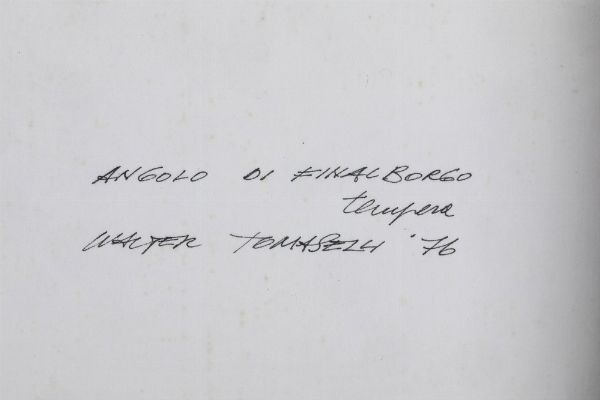 ANGOLO DI FINALBORGO
tempera
WALTER TOMASELLI '76